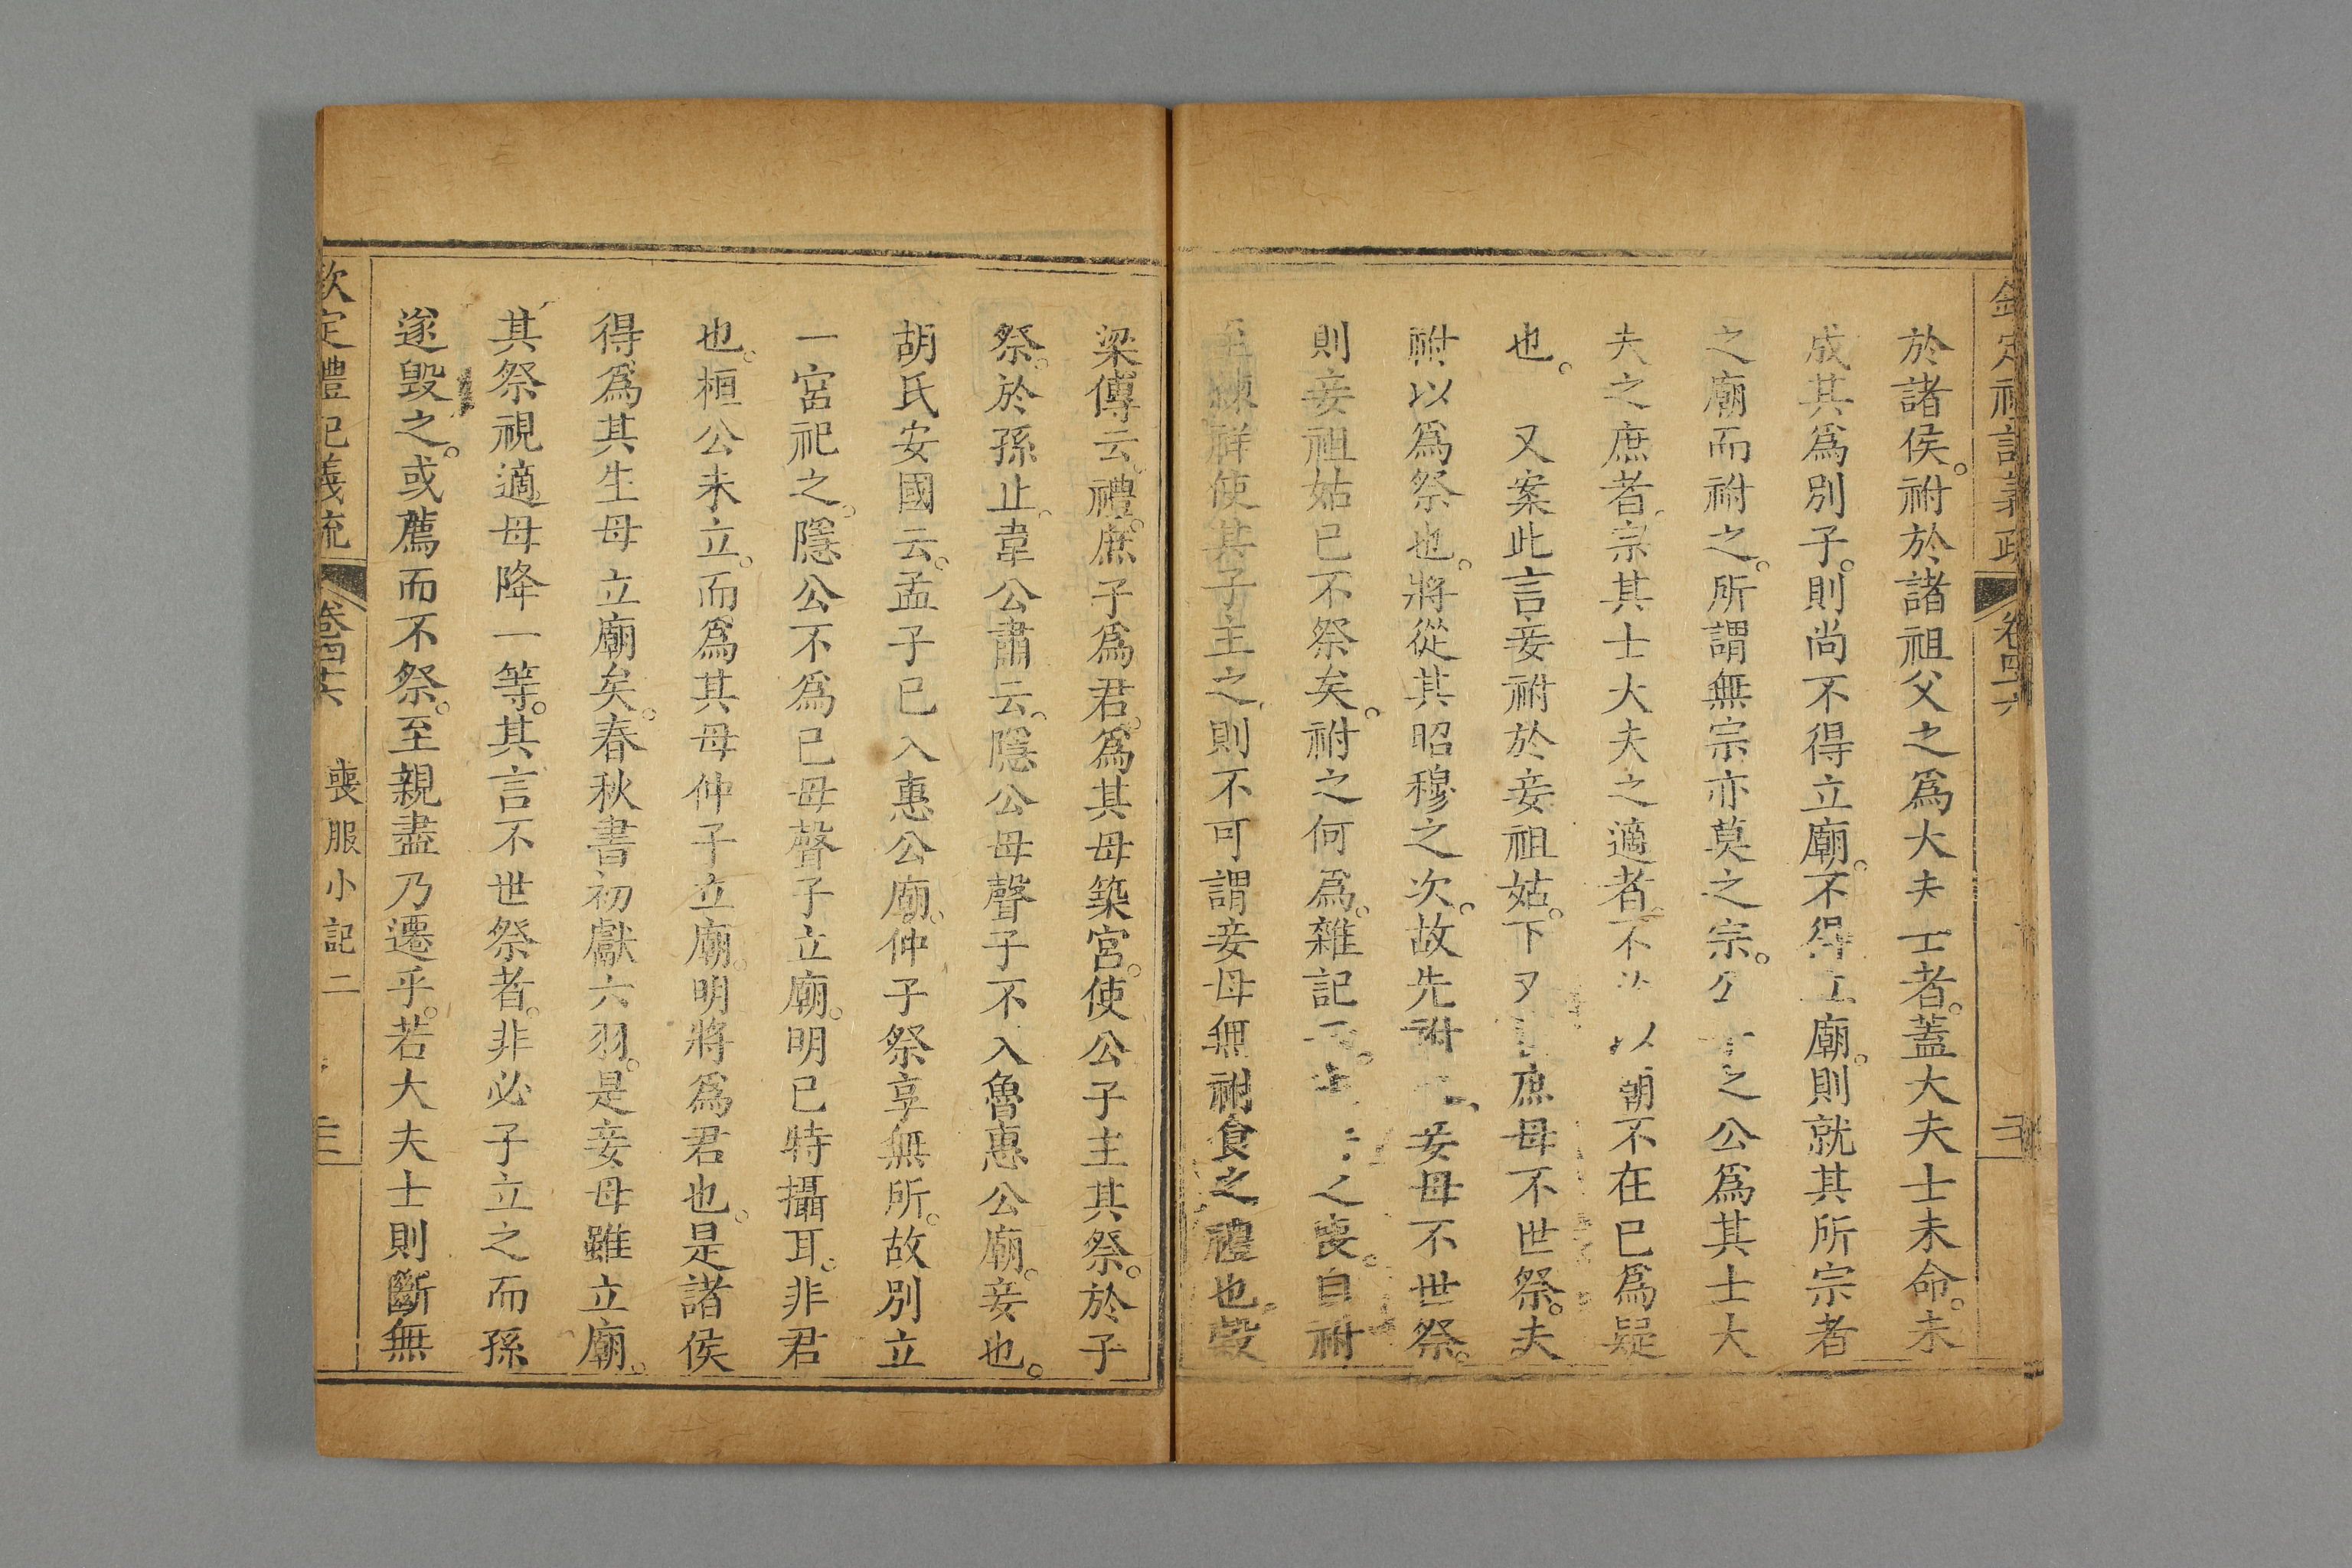 欽定禮記義疏 卷四十六
於諸侯。祔於諸祖父之爲大夫士者。蓋大夫士未命。未
成其爲別子。則尚不得立廟。不得立廟。則就其所宗者
之廟而祔之。所謂無宗亦莫之宗。公子之公爲其士大
夫之庶者。宗其士大夫之適者。不以朝不在已爲疑
也。　又案此言妾祔於妾祖姑。下又庶母不世祭。夫
祔以爲祭也。將從其昭穆之次。故先祔妾母不世祭。
則妾祖姑已不祭矣。祔之何爲。雜記之喪。自祔
至練祥使其子主之、則不可謂妾母無祔食之禮也。穀
梁傳云。禮。庶子爲君。爲其母築宮。使公子主其祭。於子
祭。於孫止。韋公肅云。隱公母聲子不入魯惠公廟。妾也。
胡氏安國云。孟子已入惠公廟。仲子祭享無所。故別立
一宮祀之。隱公不爲已母聲子立廟。明已特攝耳。非君
也。桓公未立。而爲其母仲子立廟。明將爲君也。是諸侯
得爲其生母立廟矣。春秋書初獻六羽。是妾母雖立廟。
其祭視適母降一等。其言不世祭者。非必子立之而孫
遂毀之。或薦而不祭。至親盡乃遷乎。若大夫士則斷無
欽定禮記義疏 卷四十六 喪服小記二